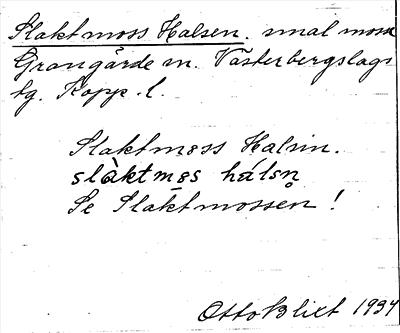 Slaktmoss Halsen. smal mosse
Grangärde sn. Västerbergslags
tg. Kopp. l.
Slaktmoss Halsin.
slàktmǝs hálsn̥
Se Slaktmossen!
Otto Blixt 1934